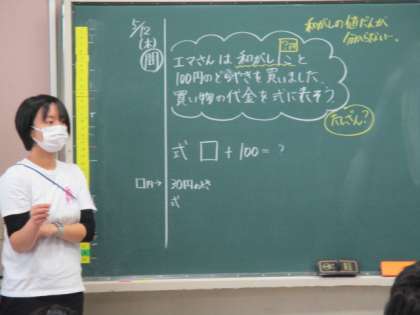 5/12
(木)
問
エマさんは 和がし1こと
100円のどらやきを買いました。
買い物の代金を式に表そう。
和がしの値だんが
分からない…
たしざん?
式 □ + 100 = ?
□円→ 30円のとき
式